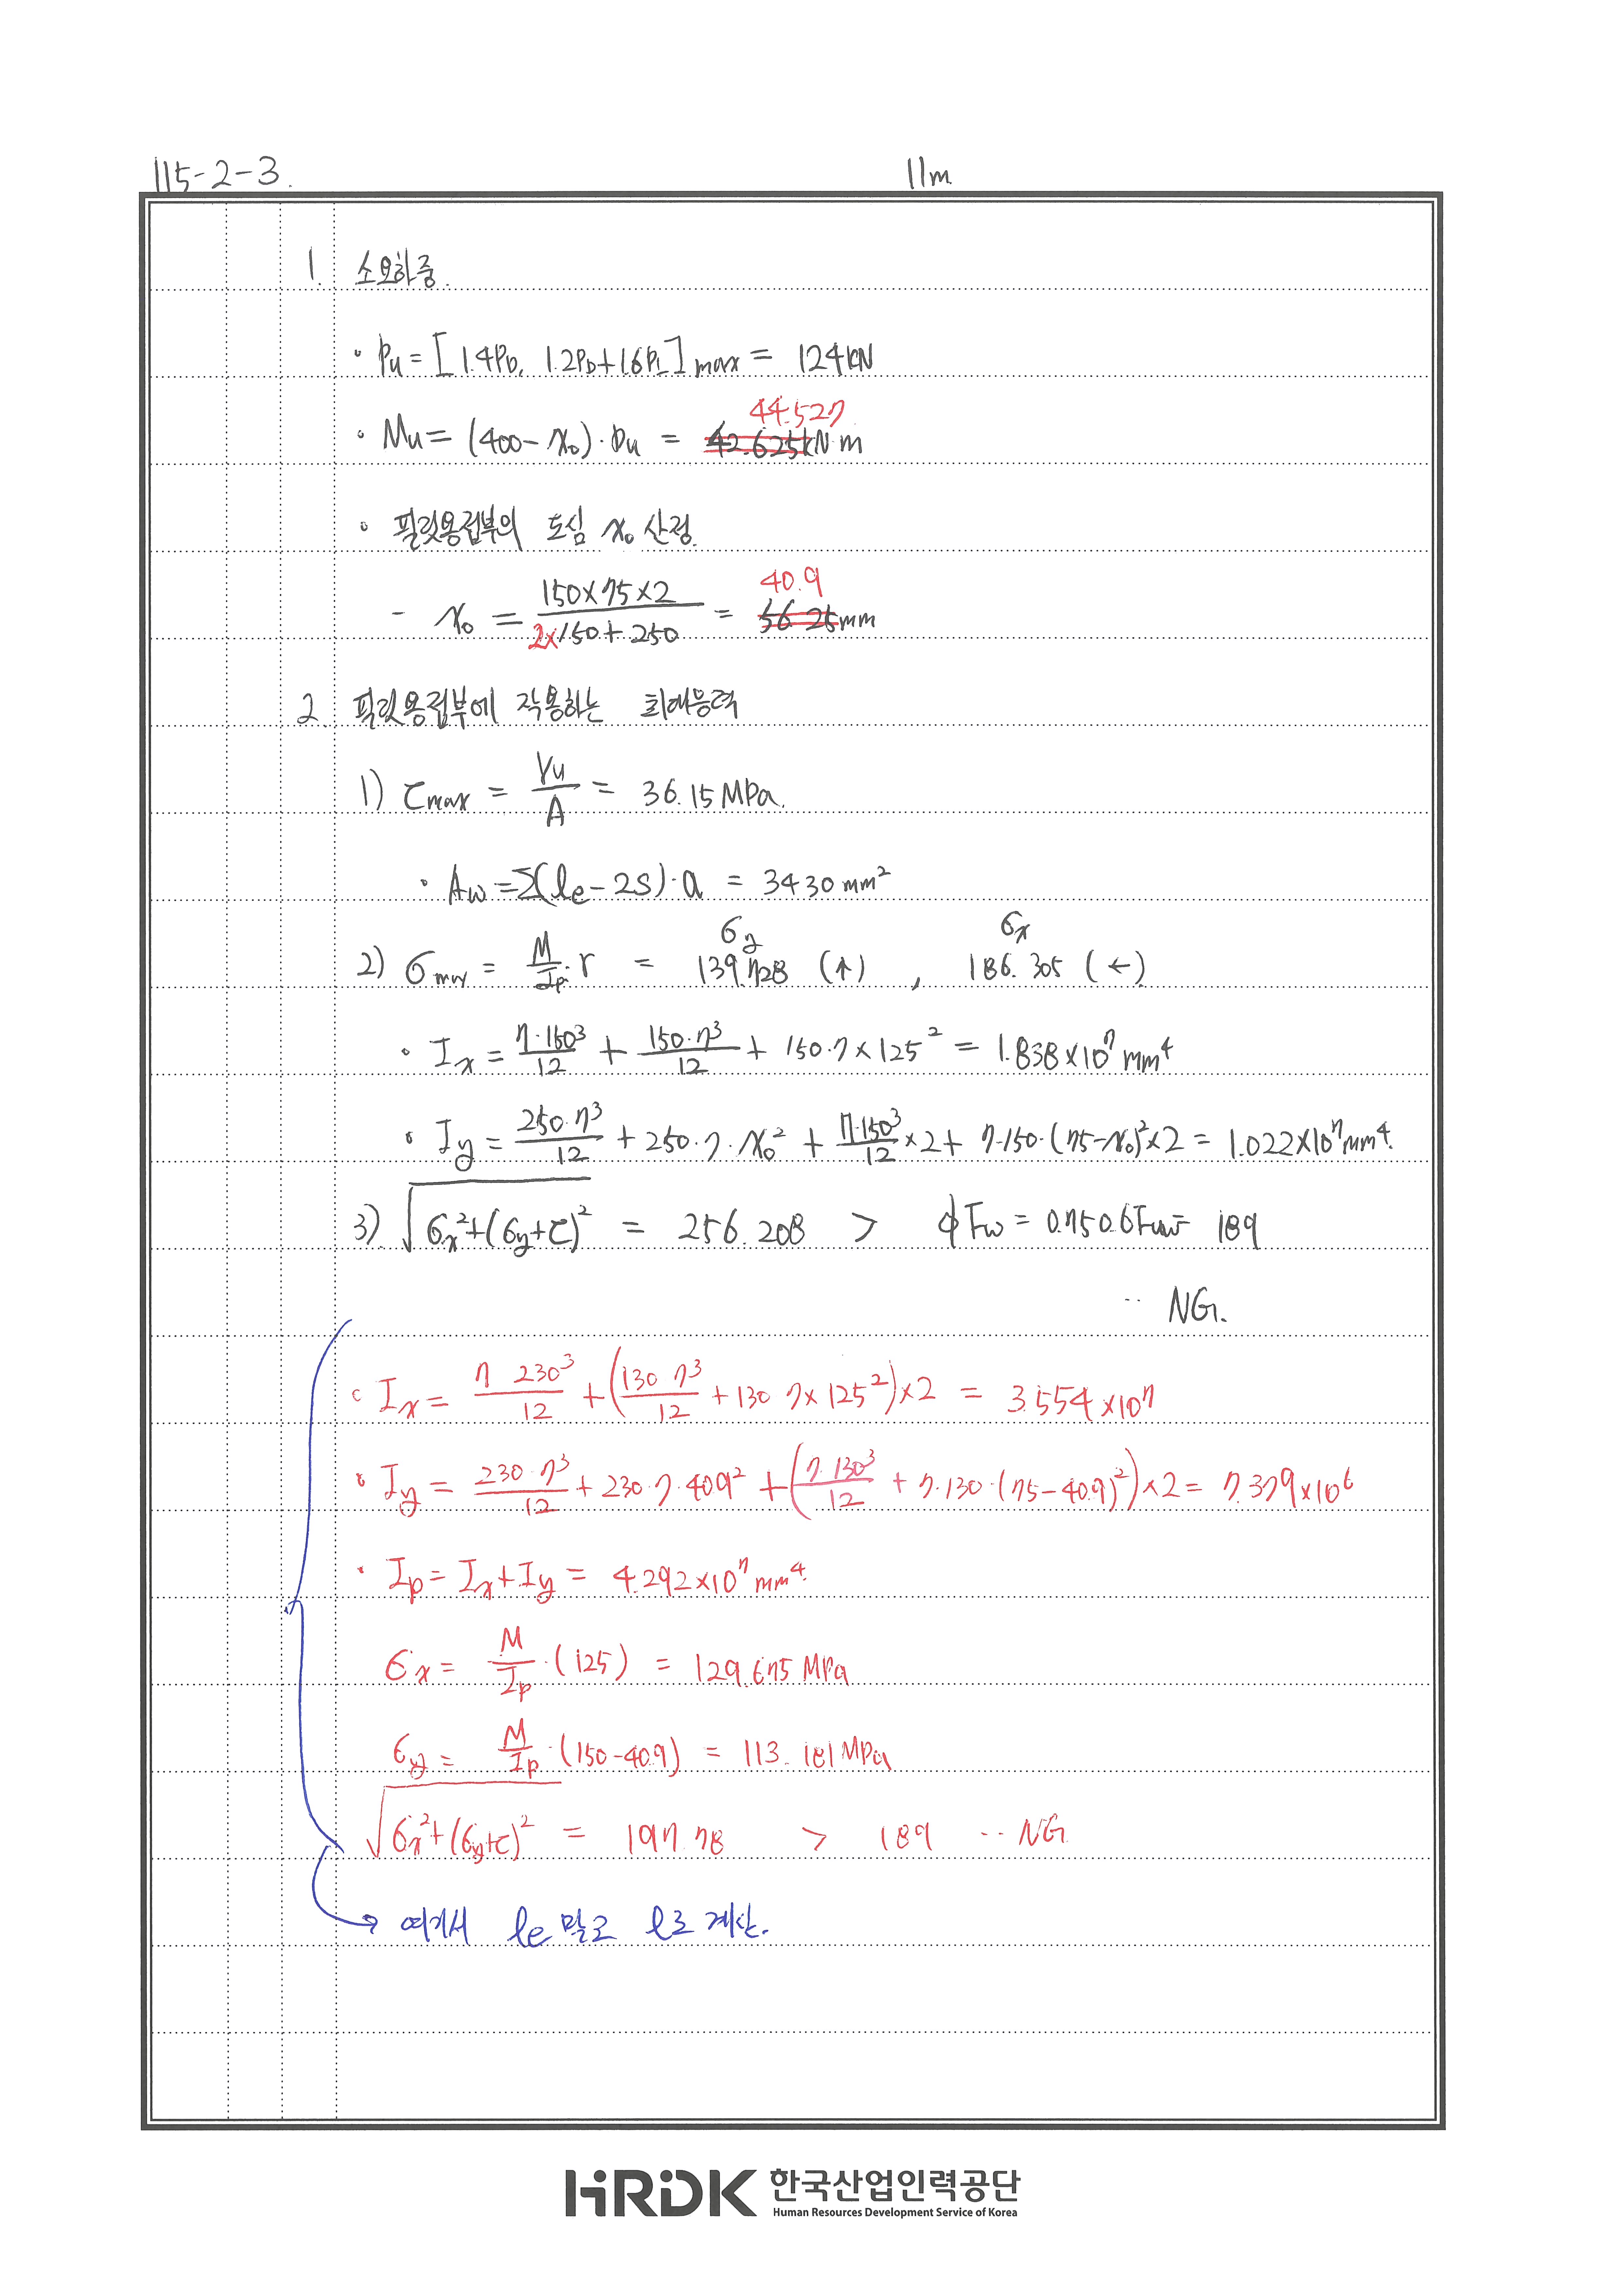 115-2-3.
11m
1. 소요하중.
• Pu = [1.4PD, 1.2PD+1.6PL] max = 124kN
44.527
• Mu = (400-x₀)·Pu = 42.625kN·m
• 필릿용접부의 도심 x₀ 산정.
- x₀ = 150×75×2 / 2×150+250 = 56.25mm
40.9
2. 필릿용접부에 작용하는 최대응력
1) τmax = Vu/A = 36.15 MPa.
• Aw = Σ(le-2s)·a = 3430 mm²
2) σmax = M/Ip·r = σy 139.728 (↑), σx 186.305 (←)
• Ix = 7·150³/12 + 150·7³/12 + 150·7×125² = 1.838×10⁷ mm⁴
• Iy = 250·7³/12 + 250·7·x₀² + 7·150³/12×2 + 7·150·(75-x₀)²×2 = 1.022×10⁷mm⁴.
3) √σx²+(σy+τ)² = 256.208 > φFw = 0.75 0.6Fuw = 189
∴ NG.
• Ix = 7 230³/12 + (130 7³/12 + 130 7×125²)×2 = 3.554×10⁷
• Iy = 230·7³/12 + 230·7·40.9² + (7·130³/12 + 7·130·(75-40.9)²)×2 = 7.379×10⁶
• Ip = Ix+Iy = 4.292×10⁷ mm⁴.
σx = M/Ip·(125) = 129.675 MPa
σy = M/Ip·(150-40.9) = 113.181 MPa
√σx²+(σy+τ)² = 197.78 > 189 ∴ NG
→ 여기서 le 말고 l로 계산.
HRDK 한국산업인력공단
Human Resources Development Service of Korea